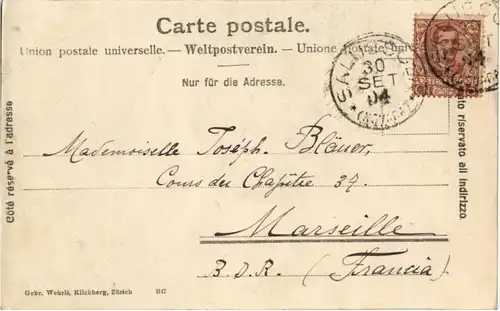 Carte postale.
Union postale universelle. — Weltpostverein. — Unione Postale
Nur für die Adresse.
Côté réservé à l'adresse
30
SET
04
Mademoiselle Joséph. Bläuer,
Cours du Chapitre 37.
Marseille
B. d. R. (Francia)
riservato all indirizzo.
Gebr. Wehrli, Kilchberg, Zürich